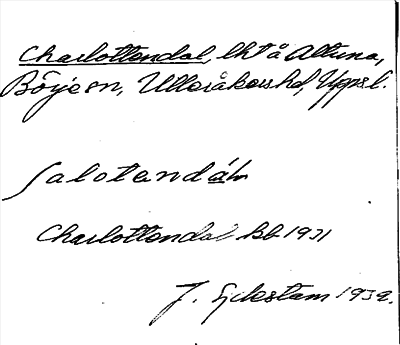 Charlottendal, lht å Altuna,
Börje sn, Ulleråkers hd, Uppsl.
Salotandáln
Charlottendal kb 1931
J. Sjelestam 1932.